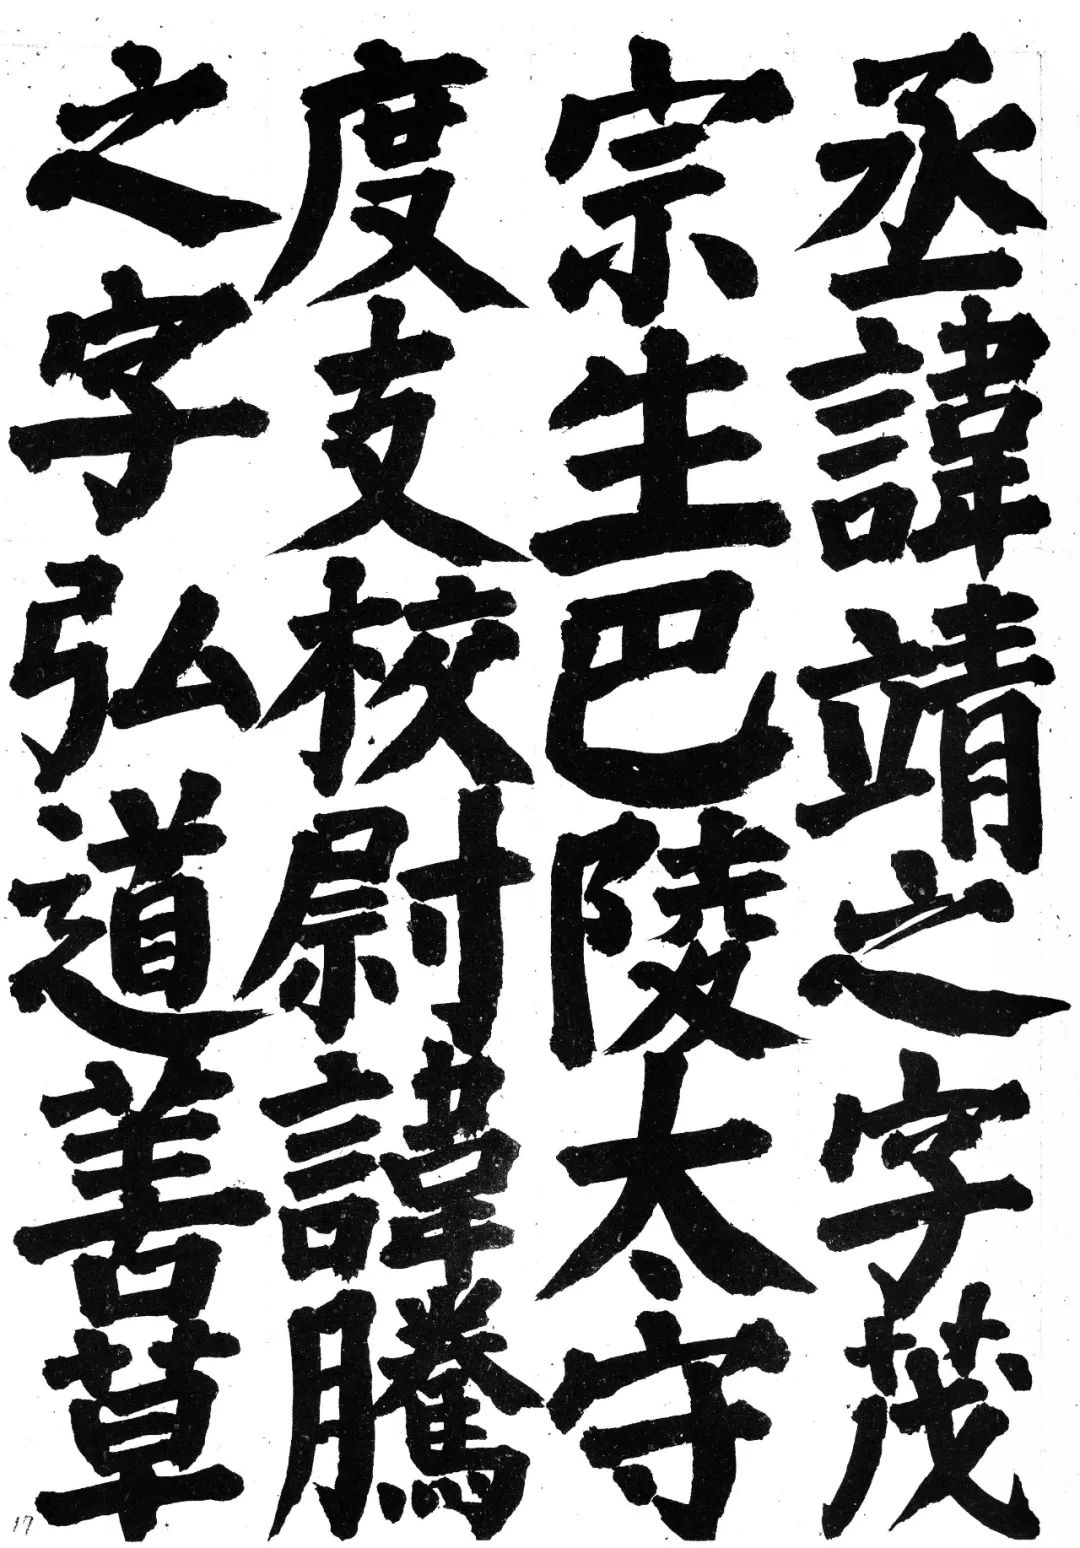 丞諱靖之字茂
宗生巴陵太守
度支校尉諱騰
之字弘道善草
17